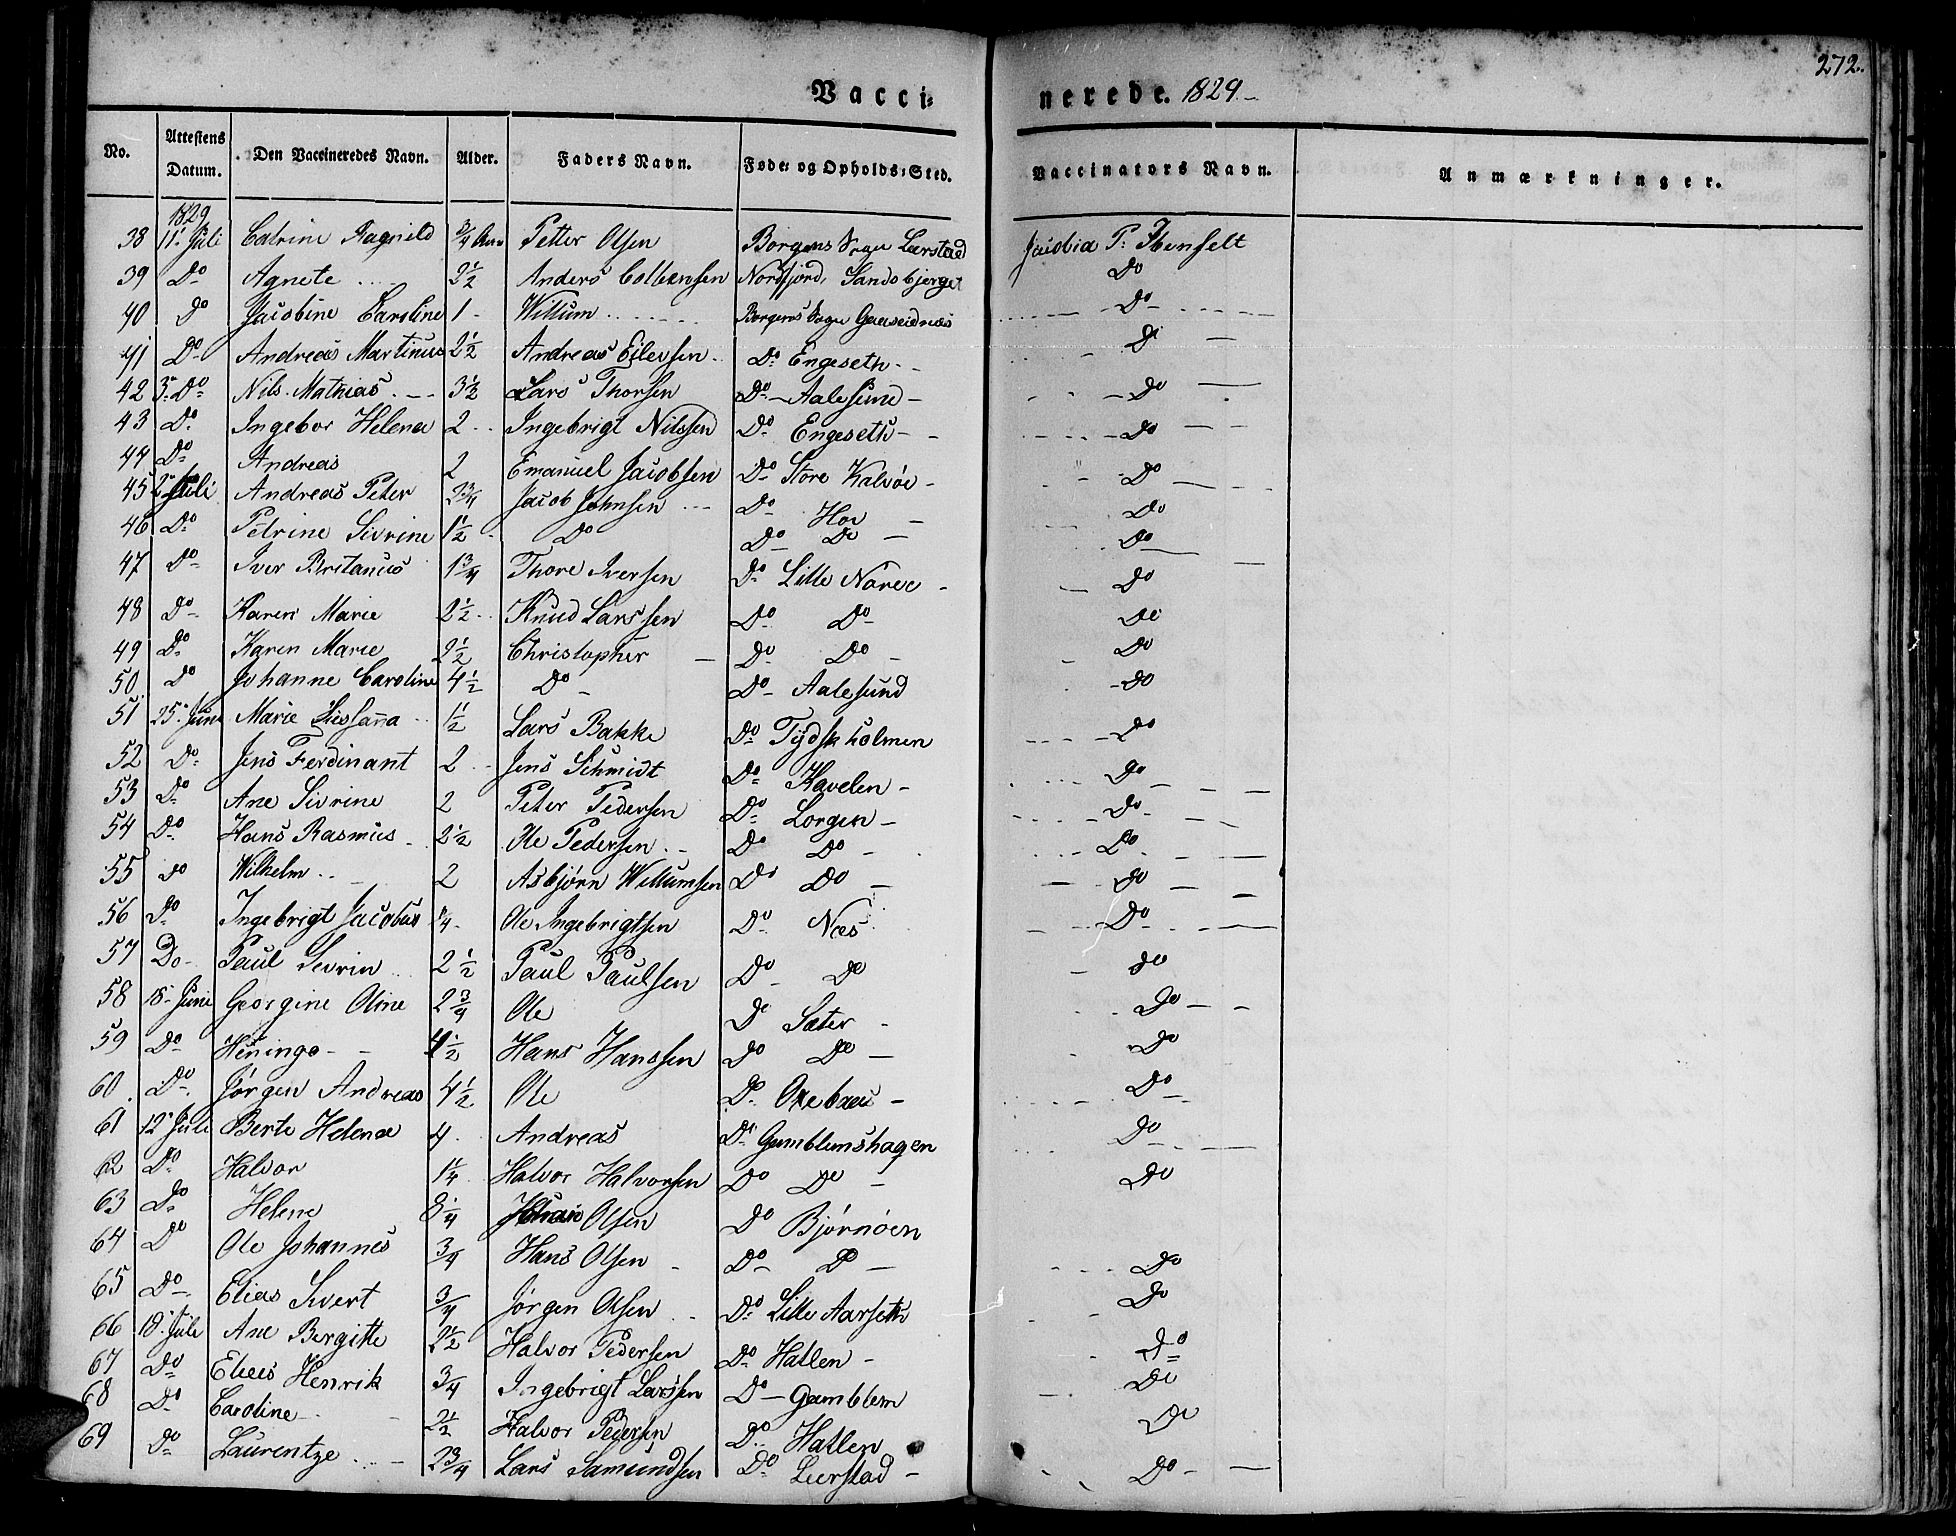 272.
Vacci=nerede. 1829.
No. | Attestens Datum. | Den Vaccineredes Navn. | Alder. | Faders Navn. | Føde= og Opholds=Sted. | Vaccinators Navn. | Anmærkninger.
1829
38 | 11. Juli | Catrine Ragnild | 3/4 | Petter Olsen | Borgens Sogn Leerstad | Jacobia P:
39 | Do | Agnete | 2 1/2 | Anders Colbensen | Nordfjord, Sandsbjerget | Do
40 | Do | Jacobine Caroline | 1 | Willum | Borgens Sogn Gaaseidnæs | Do
41 | Do | Andreas Martinus | 2 1/2 | Andreas Eilersen | Do Engeseth | Do
42 | 3. Do | Nils Mathias | 3 1/2 | Lars Thorsen | Do Aalesund | Do
43 | Do | Ingebor Helena | 2 | Ingebrigt Nilssen | Do Engeseth | Do
44 | Do | Andreas | 2 | Emanuel Jacobsen | Do Store Kalvøe | Do
45 | 2. Juli | Andreas Peter | 2 3/4 | Jacob Johnsen | Do Hov | Do
46 | Do | Petrine Sivrine | 1 1/2 | Do | Do Do | Do
47 | Do | Iver Britanus | 1 3/4 | Thore Iversen | Do Lille Nørve | Do
48 | Do | Karen Marie | 2 1/2 | Knud Larssen | Do Do | Do
49 | Do | Karen Marie | 2 1/2 | Christopher | Do Do | Do
50 | Do | Johanne Caroline | 4 1/2 | Do | Do Aalesund | Do
51 | 25. Juni | Marie Sussanna | 1/2 | Lars Bakke | Do Tydskholmen | Do
52 | Do | Jens Ferdinant | 2 | Jens Schmidt | Do Kavelen | Do
53 | Do | Ane Sivrine | 2 | Peter Pedersen | Do Lorgen | Do
54 | Do | Hans Rasmus | 2 1/2 | Ole Pedersen | Do Do | Do
55 | Do | Wilhelm | 2 | Asbjørn Willumsen | Do Do | Do
56 | Do | Ingebrigt Jacobus | 1/4 | Ole Ingebrigtsen | Do Næs | Do
57 | Do | Paul Sevrin | 2 1/2 | Paul Paulsen | Do Do | Do
58 | 18. Juni | Georgine Oline | 2 3/4 | Ole | Do Sæter | Do
59 | Do | Heninge | 4 1/2 | Hans Hanssen | Do Do | Do
60 | Do | Jørgen Andreas | 4 1/2 | Ole | Do Oxebaas | Do
61 | 12. Juli | Berte Helenæ | 4 | Andreas | Do Gamblemshagen | Do
62 | Do | Halvor | 1 1/4 | Halvor Halvorsen | Do Do | Do
63 | Do | Helene | 3 1/4 | Johan Olsen | Do Bjørnøen
64 | Do | Ole Johannes | 3/4 | Hans Olsen | Do Do | Do
65 | Do | Elias Sivert | 3/4 | Jørgen Olsen | Do Lille Aarseth | Do
66 | 18. Juli | Ane Bergitte | 2 1/2 | Halvor Pedersen | Do Hatlen | Do
67 | Do | Elias Henrik | 3/4 | Ingebrigt Larssen | Do Gamblem | Do
68 | Do | Caroline | 2 1/2 | Halvor Pedersen | Do Hatlen | Do
69 | Do | Laurentze | 2 3/4 | Lars Samundsen | Do Leerstad | Do